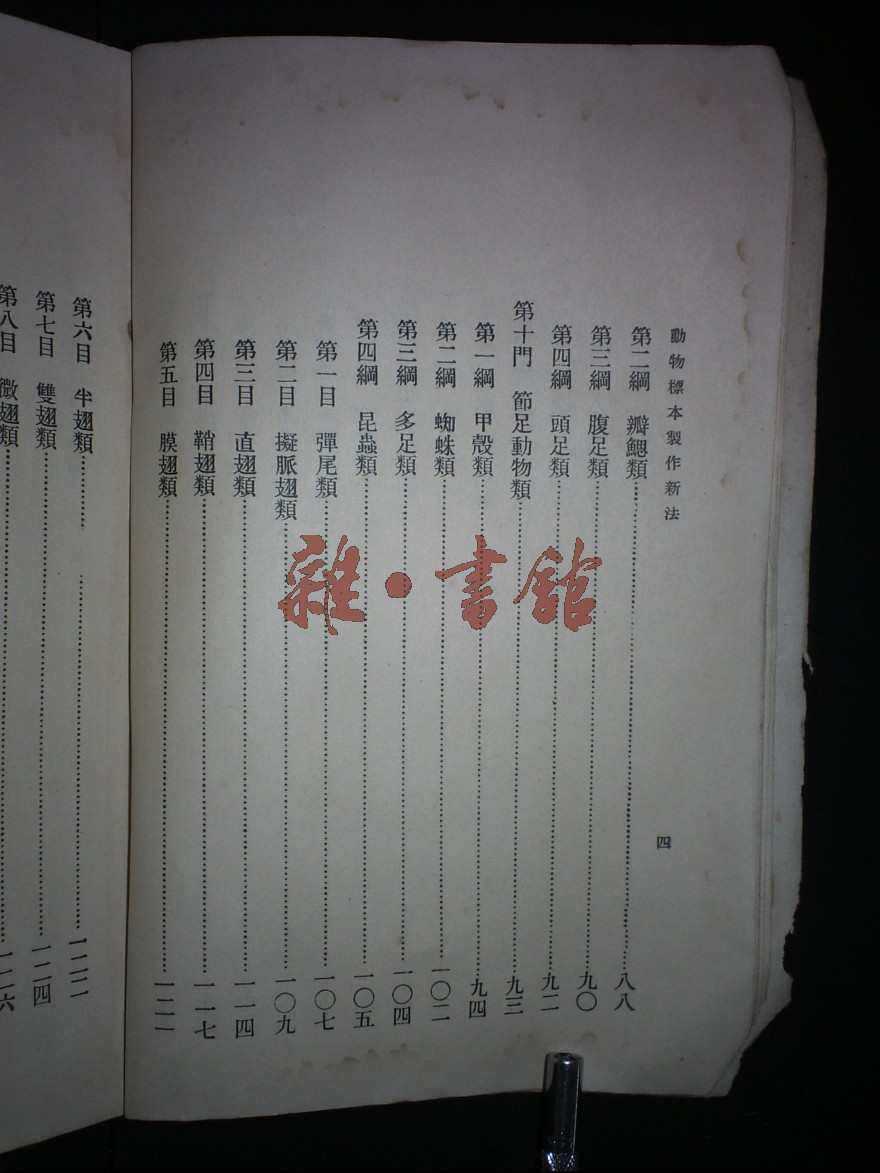 動物標本製作新法
四
第二綱 瓣鰓類……八八
第三綱 腹足類……九〇
第四綱 頭足類……九二
第十門 節足動物類……九三
第一綱 甲殼類……九四
第二綱 蜘蛛類……一〇二
第三綱 多足類……一〇四
第四綱 昆蟲類……一〇五
第一目 彈尾類……一〇七
第二目 擬脈翅類……一〇九
第三目 直翅類……一一四
第四目 鞘翅類……一一七
第五目 膜翅類……一二一
第六目 半翅類……一二二
第七目 雙翅類……一二四
第八目 微翅類……一二六
雜·書館